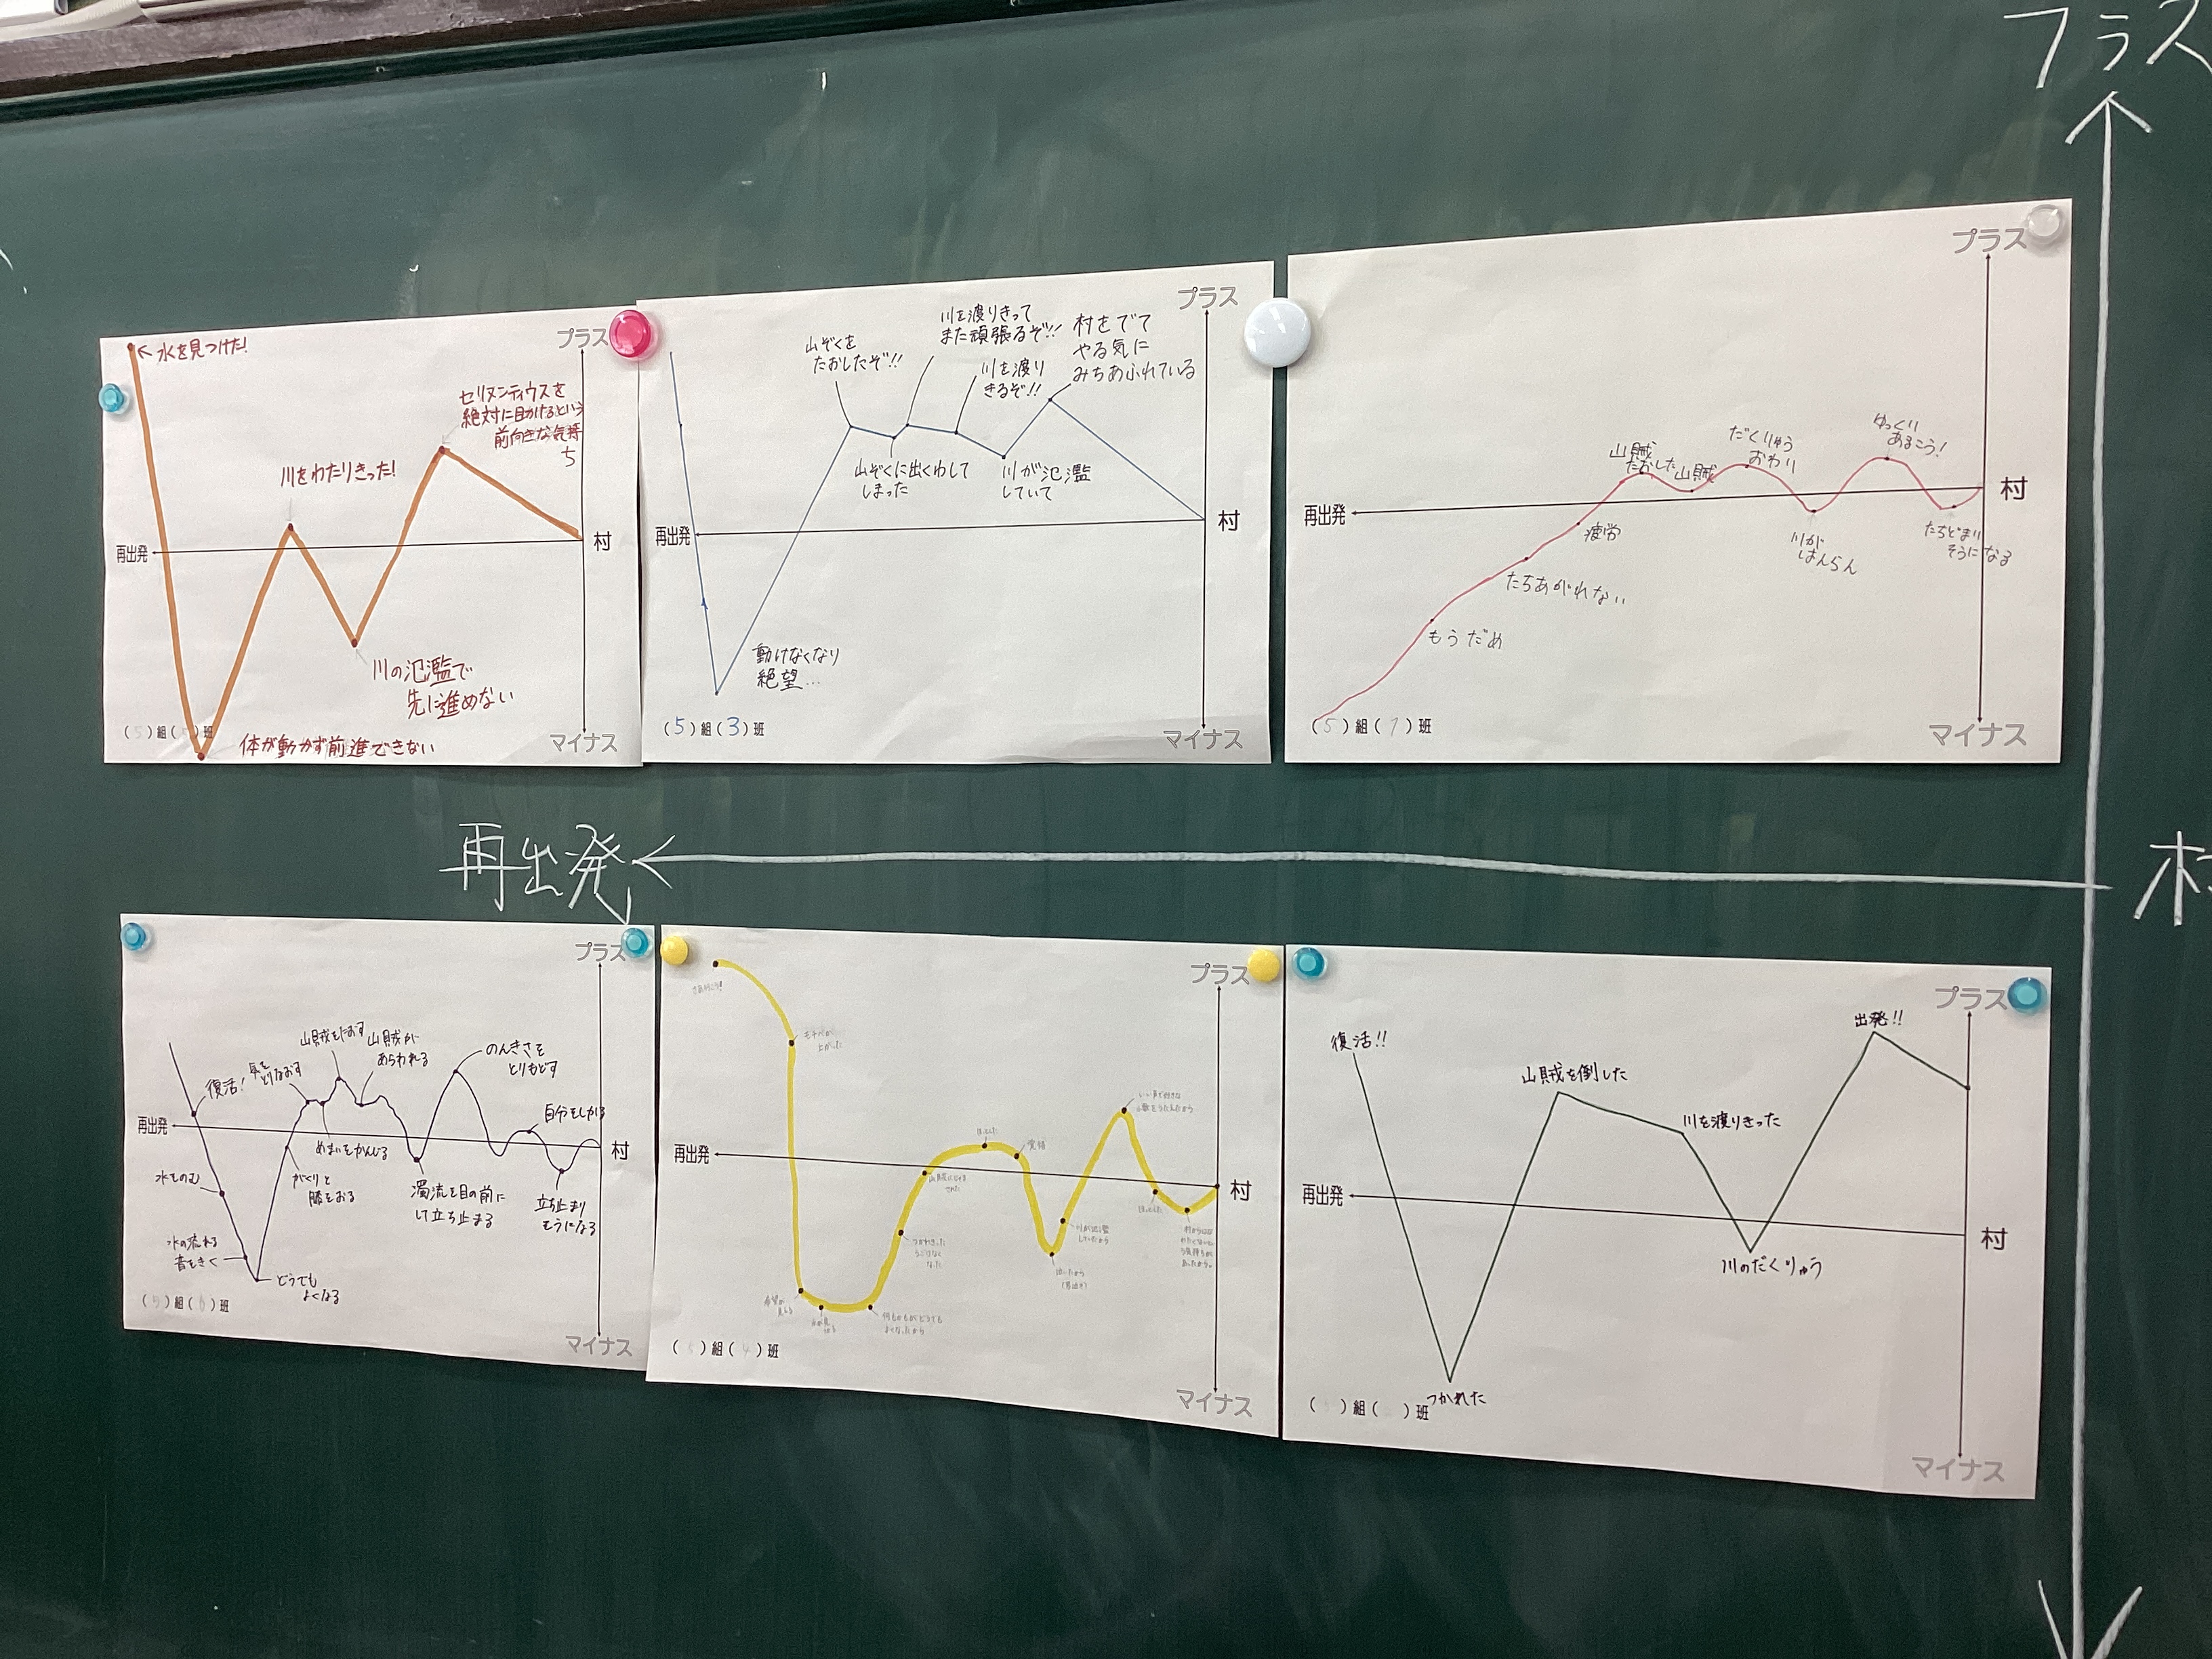 プラス
村
再出発
プラス
村
再出発
マイナス
ゆっくり
あるこう!
だくりゅう
おわり
山賊
たおした
山賊
たちどまり
そうになる
川が
はんらん
疲労
たちあがれない
もうだめ
(5)組(1)班
プラス
村
再出発
マイナス
村をでて
やる気に
みちあふれている
川を渡りきって
また頑張るぞ!!
川を渡り
きるぞ!!
山ぞくを
たおしたぞ!!
山ぞくに出くわして
しまった
川が氾濫
していて
動けなくなり
絶望…
(5)組(3)班
プラス
村
再出発
マイナス
セリヌンティウスを
絶対に助けるという
前向きな気持
ち
川をわたりきった!
水を見つけた!
川の氾濫で
先に進めない
体が動かず前進できない
(5)組( )班
プラス
村
再出発
マイナス
出発!!
川のだくりゅう
川を渡りきった
山賊を倒した
つかれた
復活!!
( )組( )班
プラス
村
再出発
マイナス
ほっとした
川が氾濫
していたから
泣いたから
(男泣き)
覚悟
ほっとした
何もかもがどうでも
よくなったから
希望が
見える
(5)組(4)班
プラス
村
再出発
マイナス
立ち止まり
そうになる
自分をしかる
のんきさを
とりもどす
濁流を目の前に
して立ち止まる
山賊が
あらわれる
山賊をたおす
めまいをかんじる
気を
とりなおす
がくりと
膝をおる
どうでも
よくなる
水の流れる
音をきく
水をのむ
復活!
(5)組(6)班